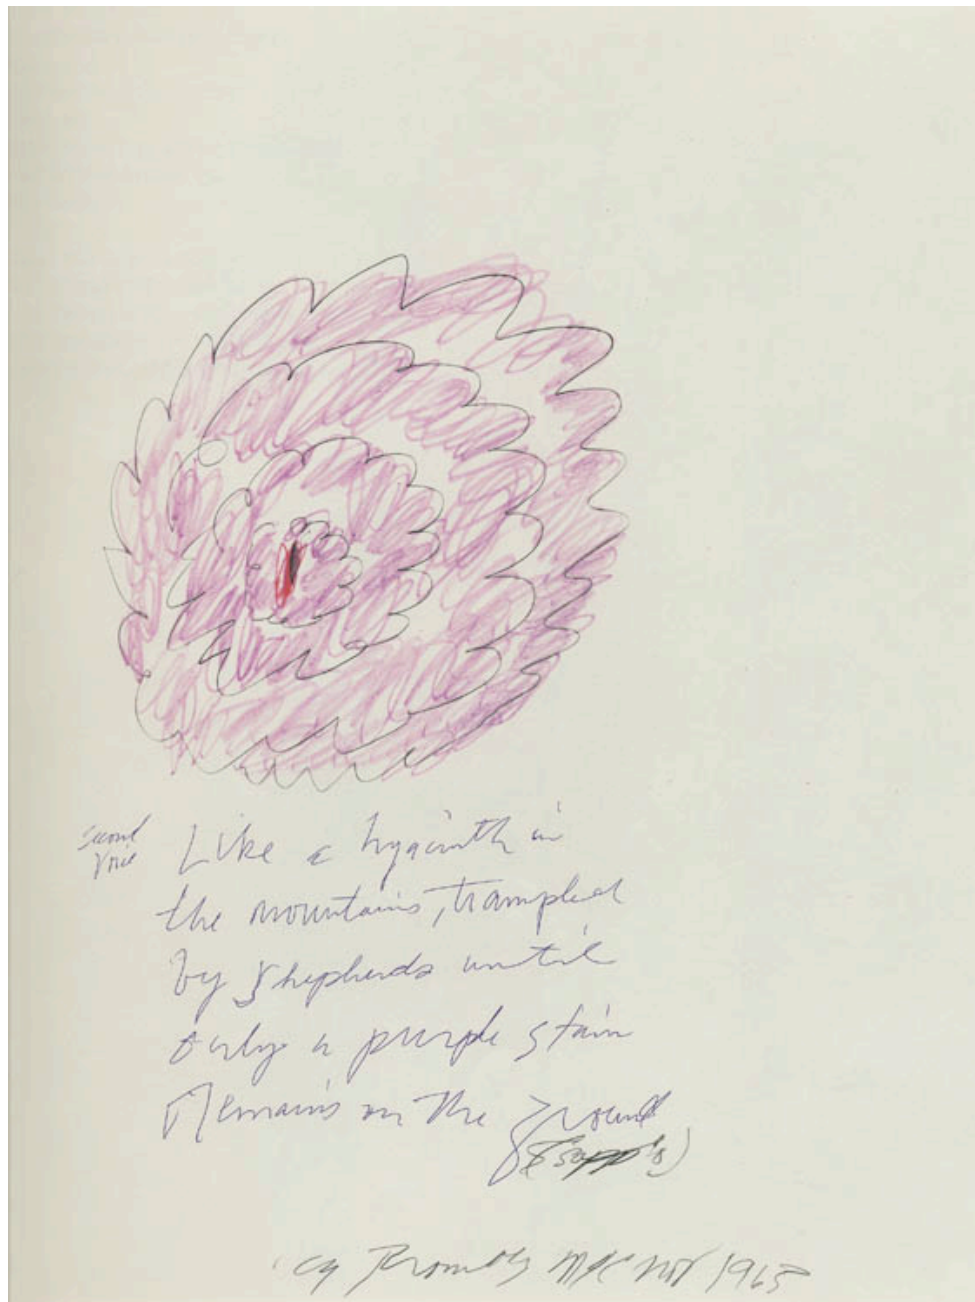 Second
Voice
Like a hyacinth in
the mountains, trampled
by shepherds until
only a purple stain
Remains on the ground
Cy Twombly NYC Nov 1968